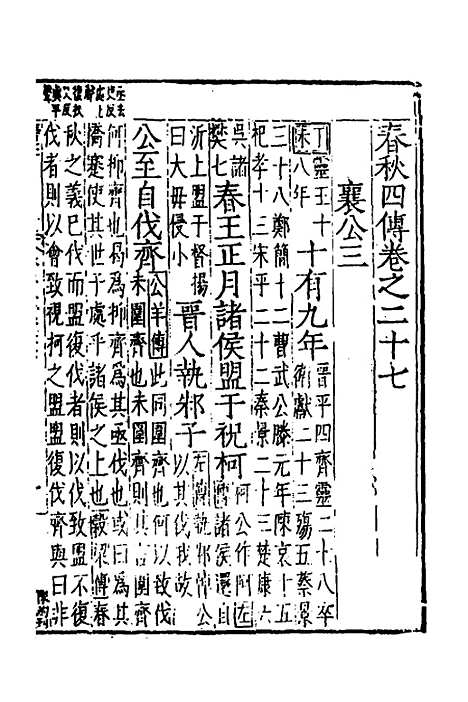 春秋四傳卷之二十七
襄公三
丁未 靈王十八年 十有九年 晉平四齊靈二十八卒
衛獻二十三殤五蔡景
三十八鄭簡十二曹武公滕元年陳哀十五
杞孝十三宋平二十二秦景二十三楚康六
吳諸樊七 春王正月諸侯盟于祝柯 柯公作阿左傳諸侯還自
沂上盟于督揚曰大毋侵小 晉人執邾子 左傳執邾悼公以其伐我故
公至自伐齊 公羊傳此同圍齊也何以致伐
未圍齊也未圍齊則其言圍齊
何抑齊也曷為抑齊為其亟伐也或曰為其
驕蹇使其世子處乎諸侯之上也穀梁傳春
秋之義已伐而盟復伐者則以伐致盟不復
伐者則以會致視柯之盟盟復伐齊與曰非